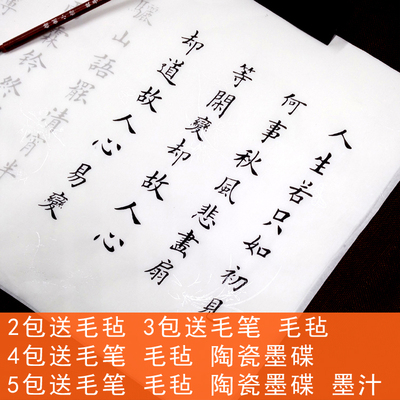 人生若只如初見
何事秋風悲畫扇
等閑變却故人心
却道故人心易變
驪山語罷清宵半
2包送毛毡 3包送毛笔 毛毡
4包送毛笔 毛毡 陶瓷墨碟
5包送毛笔 毛毡 陶瓷墨碟 墨汁